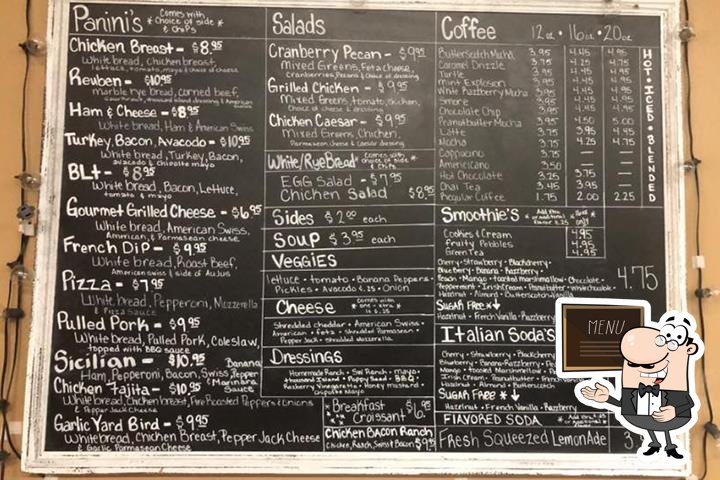 Panini's Comes with choice of side & chips
Chicken Breast - $8.95
White bread, Chicken breast,
lettuce, tomato, mayo & choice of cheese
Reuben - $10.95
marble rye bread, corned beef,
Ham & Cheese - $8.95
White bread, Ham & American Swiss
Turkey, Bacon, Avacado - $10.95
White bread, Turkey, Bacon,
avacado & chipotle mayo
BLT - $8.95
White bread, Bacon, Lettuce,
tomato & mayo
Gourmet Grilled Cheese - $6.95
White bread, American, Swiss,
American, & Parmasean cheese
French Dip - $9.95
White bread, Roast Beef,
American swiss & side of AuJus
Pizza - $7.95
White bread, Pepperoni, Mozzerella
& Pizza Sauce
Pulled Pork - $9.95
White bread, Pulled Pork, Coleslaw,
topped with BBQ sauce
Sicilian - $10.95
Ham, Pepperoni, Bacon, Swiss, Banana Pepper & Marinara Sauce
Chicken Fajita - $10.95
White bread, Chicken breast, Fire Roasted Peppers & Onions
& Pepper Jack Cheese
Garlic Yard Bird - $9.95
White bread, Chicken Breast, Pepper Jack Cheese
& Garlic Parmasean Cheese
Salads
Cranberry Pecan - $9.95
Mixed Greens, Feta cheese,
Cranberries, Pecans & Choice of dressing
Grilled Chicken - $9.95
Mixed Greens, tomato, chicken,
Choice of cheese & dressing
Chicken Caesar - $9.95
Mixed Greens, Chicken,
Parmasean cheese & Caesar dressing
White/Rye Bread Comes with choice of side
EGG Salad - $7.95
Chicken Salad $8.95
Sides $2.00 each
Soup $3.95 each
Veggies
lettuce • tomato • Banana Peppers •
Pickles • Avocado • Onion
Cheese
Shredded cheddar • American Swiss •
American • feta • shredded Parmesean •
Pepper Jack • Shredded Mozzerella
Dressings
Homemade Ranch • mayo •
thousand Island • Poppy Seed • BBQ •
Raspberry Vinaigrette • Honey mustard •
chipotle Mayo
Breakfast Croissant $6.95
Chicken Bacon Ranch
Chicken, Ranch, Swiss & Bacon $9.95
Coffee 12oz • 16oz • 20oz
Butterscotch Mocha 3.95 4.45 4.95
Caramel Drizzle 3.75 4.25 4.75
Turtle 3.95 4.45 4.95
Mint Explosion 3.95 4.45 4.95
White Razzberry Mocha 3.95 4.45 4.95
Smore 3.95 4.45 4.95
Chocolate Chip 3.95 4.45 4.95
Peanutbutter Mocha 3.95 4.50 5.00
Latte 3.75 3.95 4.45
Mocha 3.75 4.25 4.75
Cappucino 3.75 — —
Americano 3.50 — —
Hot Chocolate 3.25 3.75 —
Chai Tea 3.45 3.95 —
Regular Coffee 1.75 2.00 2.25
HOT • ICED • BLENDED
Smoothie's
Cookies & Cream 4.95
Fruity Pebbles 4.95
Green Tea 4.95
Cherry • Strawberry • Blackcherry •
Blueberry • Banana • Razzberry •
Peach • Mango • toasted marshmallow • Chocolate •
Peppermint • Irish Cream • Peanutbutter • Whitechocolate •
Hazelnut • Almond • Butterscotch • Vanilla
4.75
Sugar Free
Hazelnut • French Vanilla • Razzberry
Italian Soda's
Cherry • Strawberry • Blackcherry
Blueberry • Banana • Razzberry
Mango • toasted Marshmallow
Irish Cream • Peanutbutter
Hazelnut • Almond • Butterscotch
Sugar Free
Hazelnut • French Vanilla • Razzberry
Flavored Soda
Fresh Squeezed Lemonade
MENU